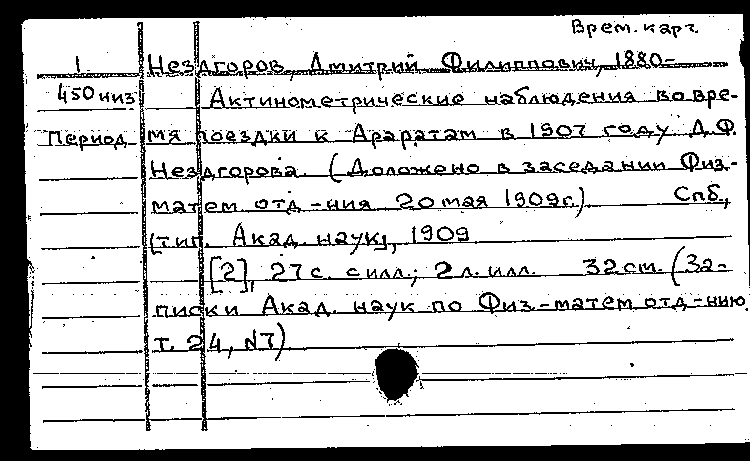 Врем. карт.
1 Нездгоров, Дмитрий Филиппович, 1880-
450 низ Актинометрические наблюдения во вре-
Период мя поездки к Араратам в 1907 году Д.Ф.
Нездгорова. (Доложено в заседании Физ.-
матем отд-ния 20 мая 1909 г.) Спб.,
[тип. Акад. наук], 1909
[2], 27 с. с илл.; 2 л. илл. 32 см. (За-
писки Акад. наук по Физ.-матем отд-нию.
т. 24, №7)